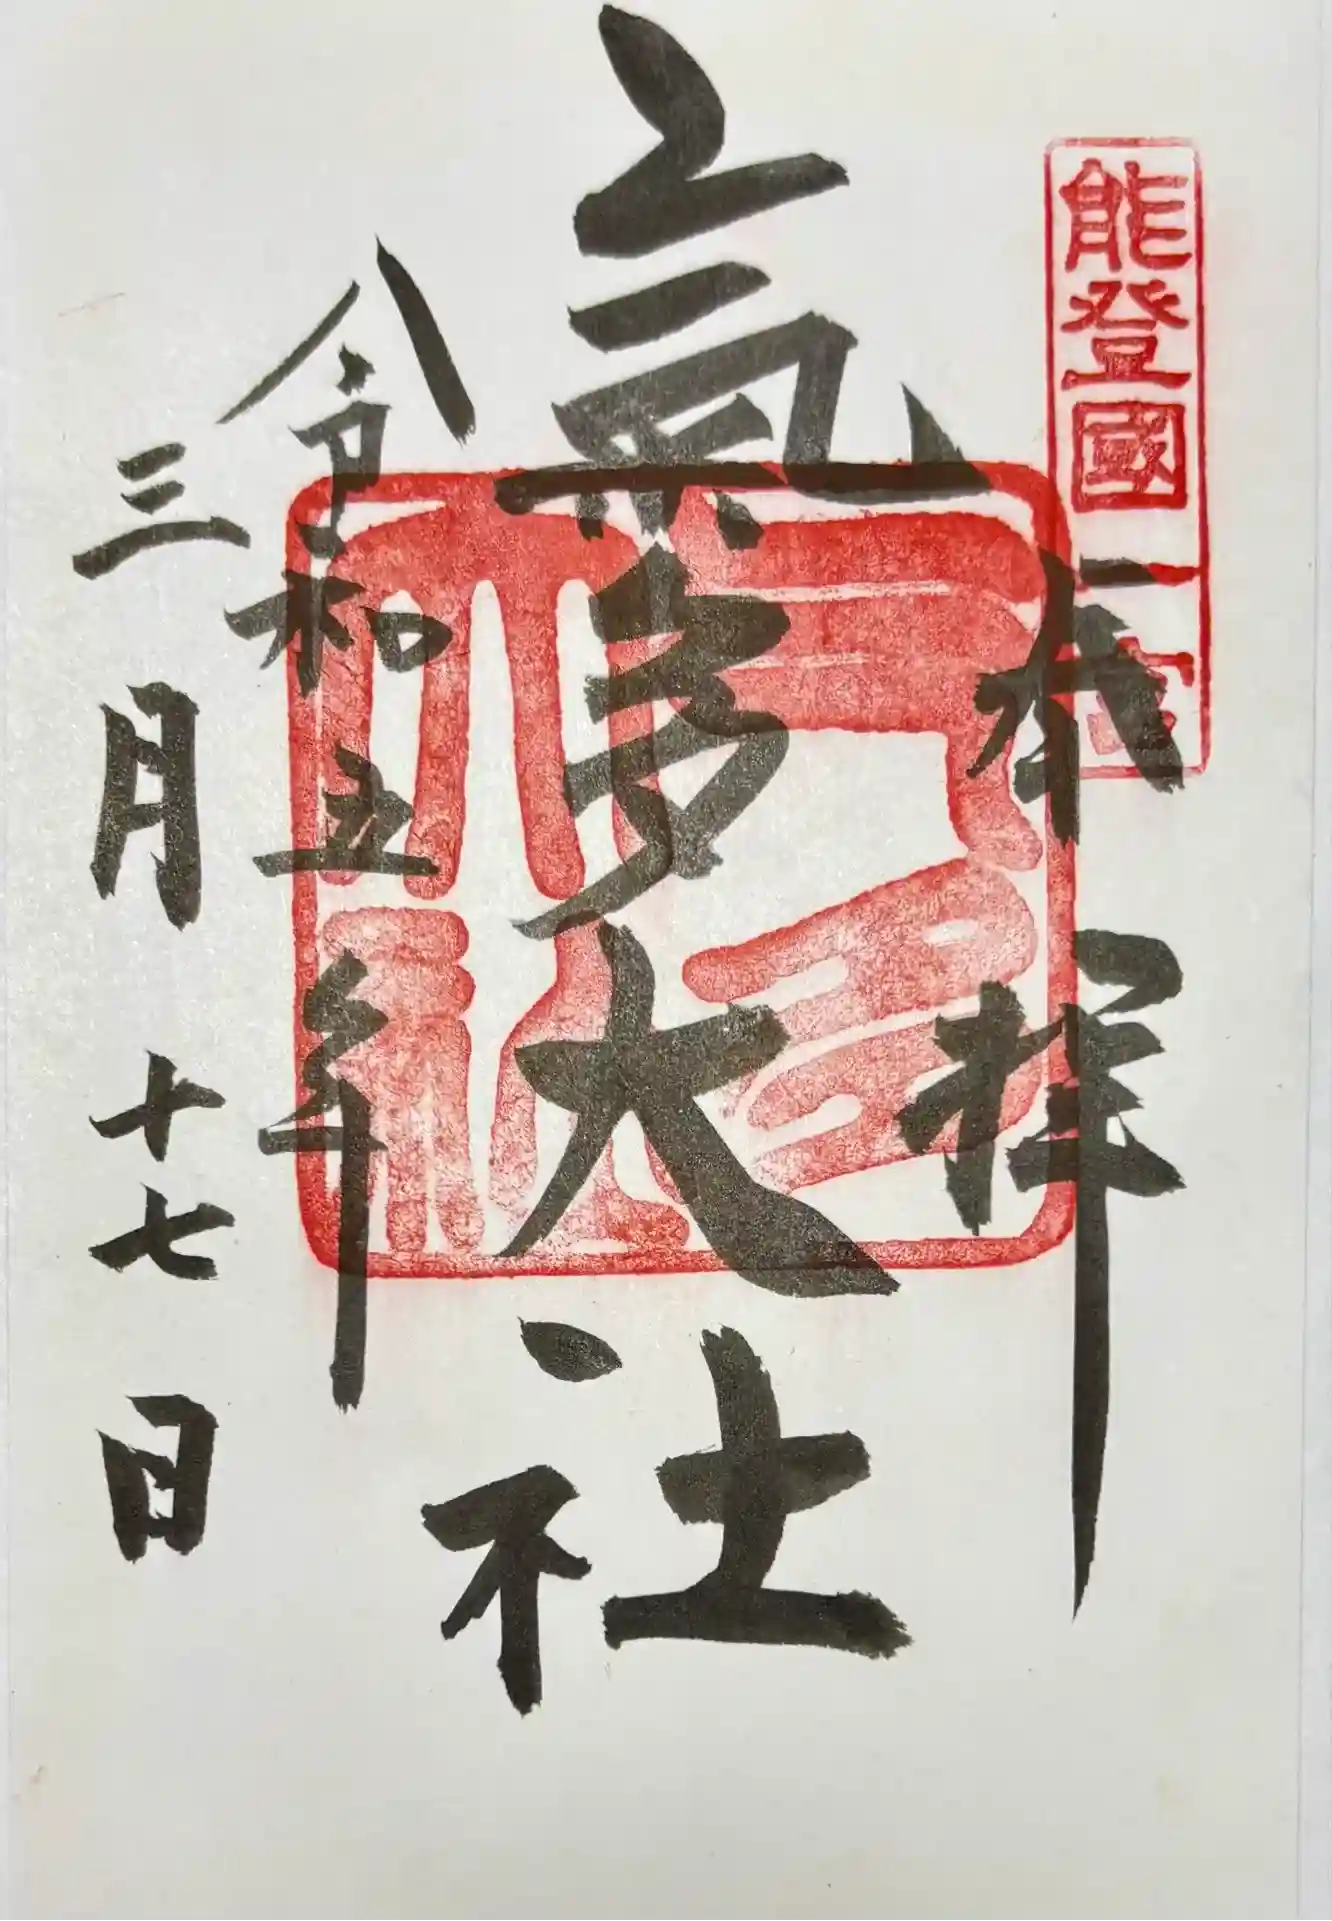 能登國一宮
奉拝
氣多大社
令和五年
三月十七日